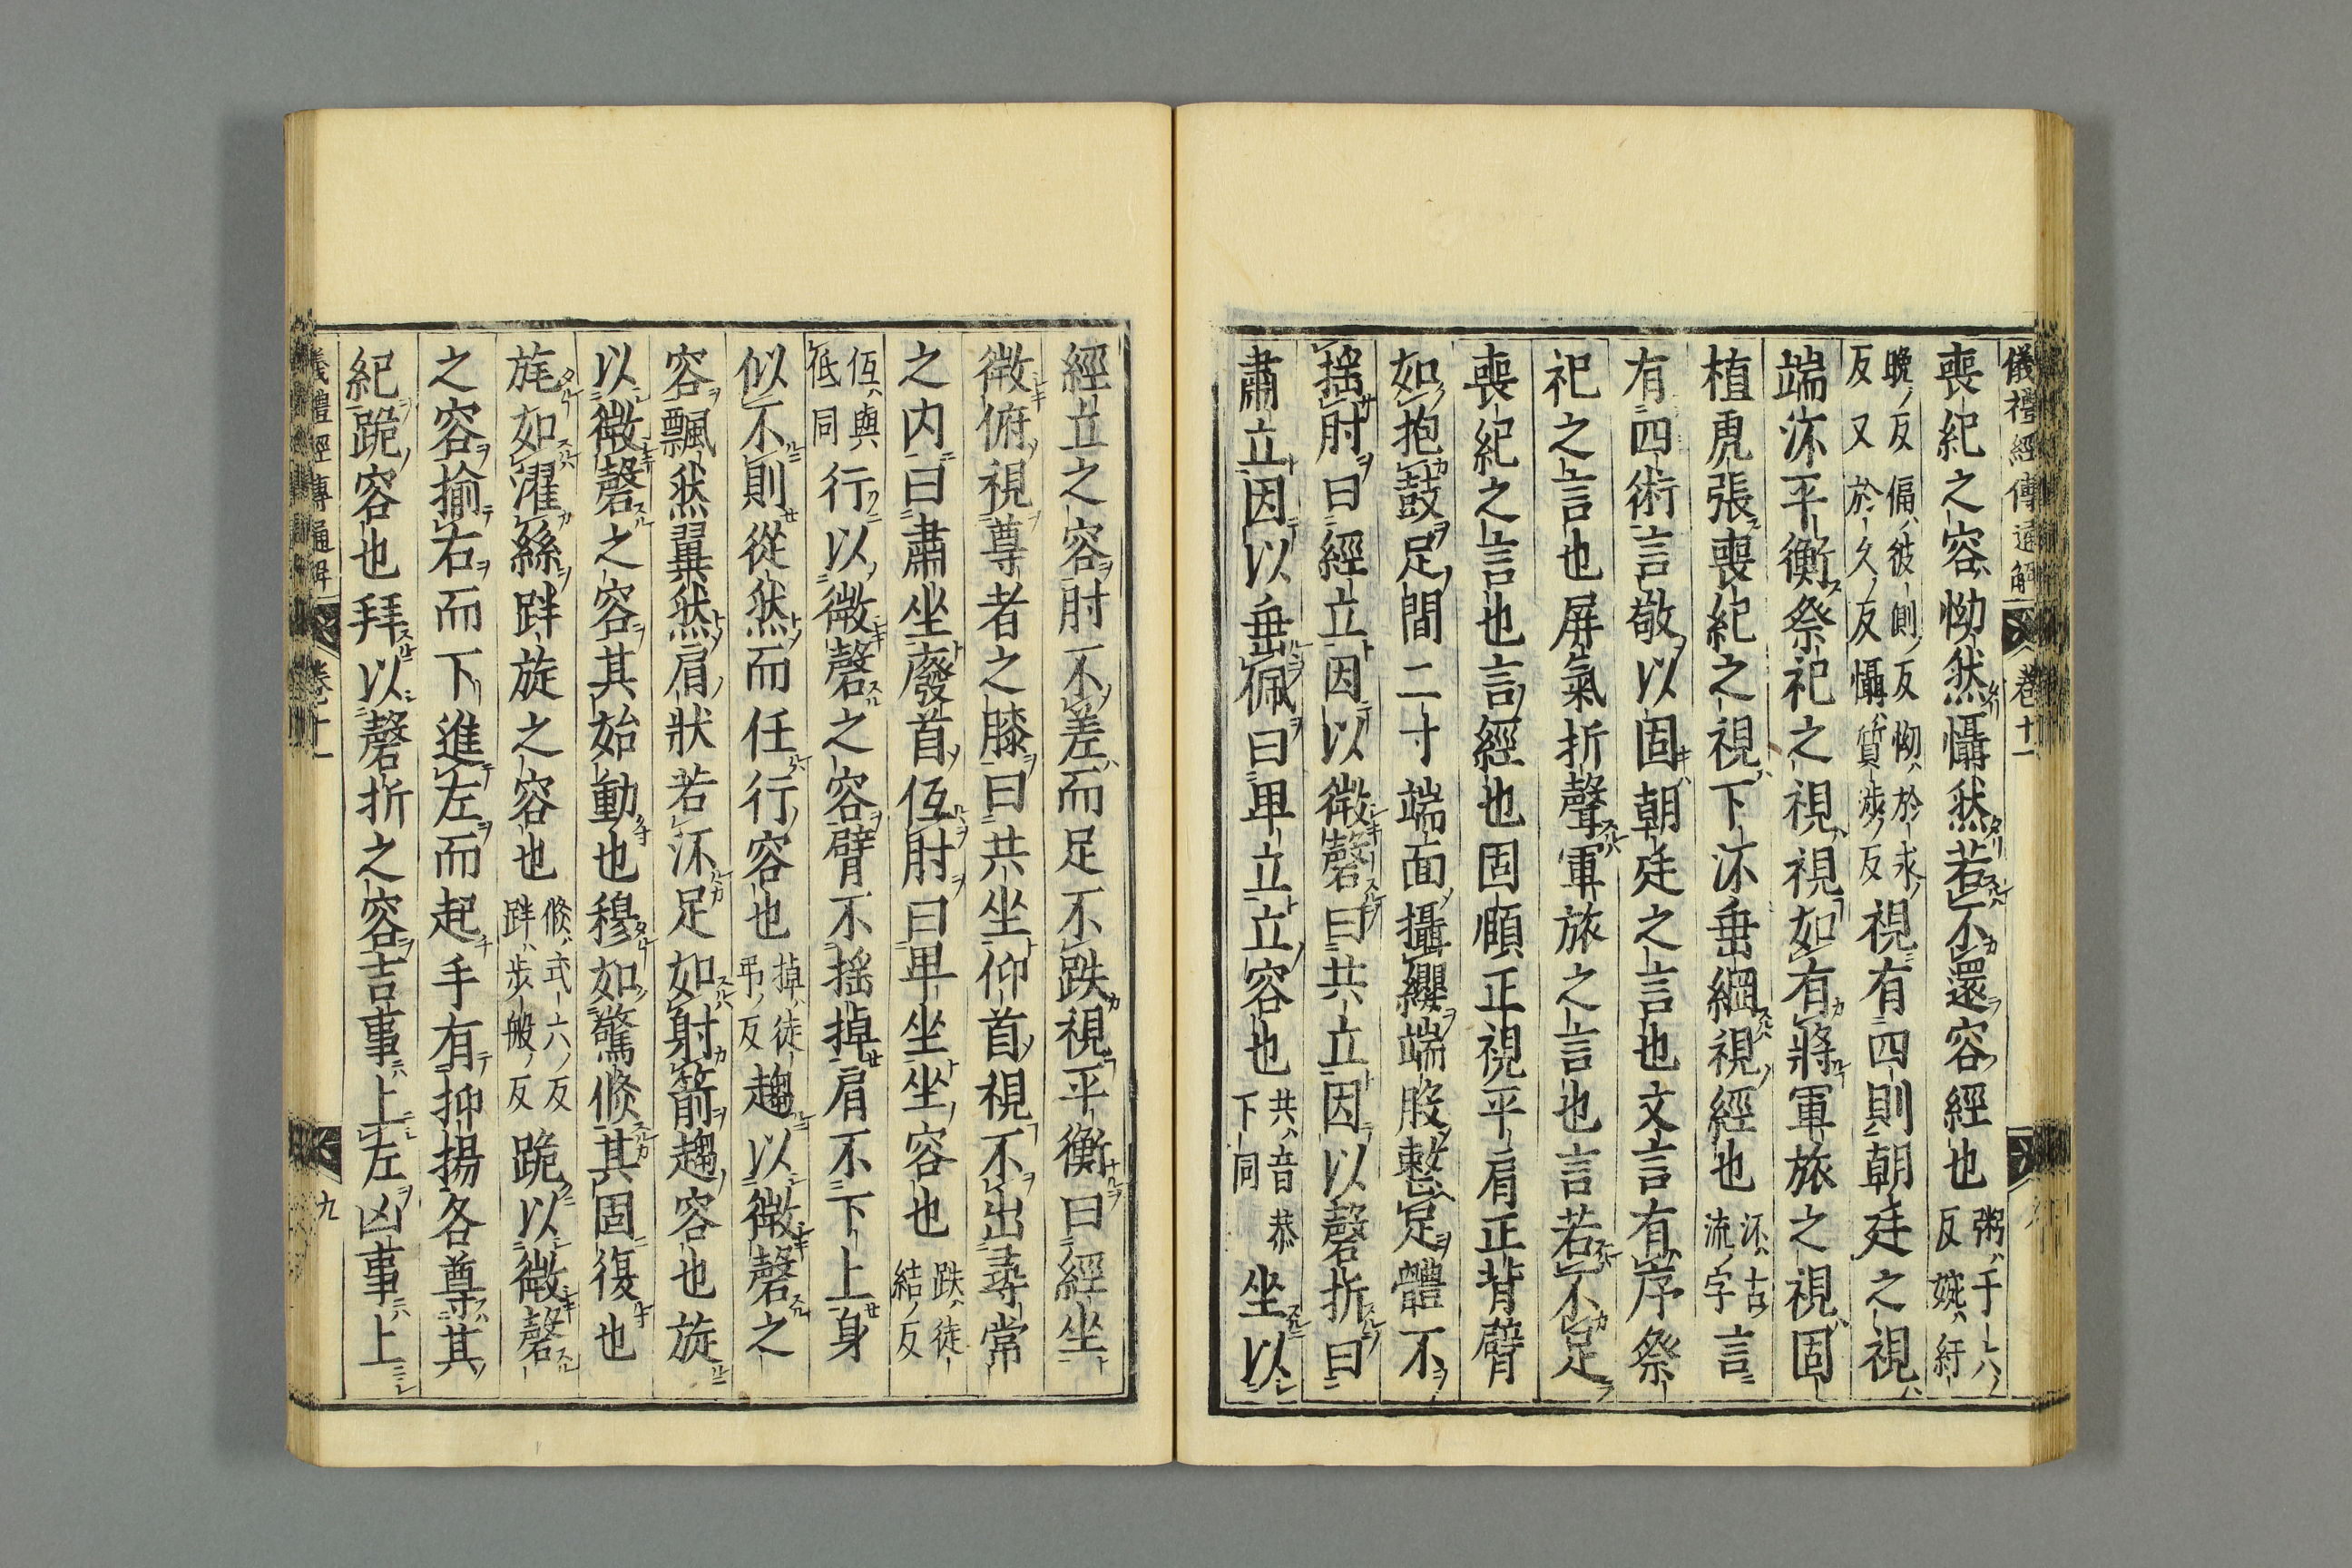 儀禮經傳通解 卷十一
喪紀之容怮然懾然若不還容經也 粥于六反㜅紆
晚反偏彼側反怮於求反又於久反懾質涉反 視有四則朝廷之視
端㳅平衡祭祀之視視如有將軍旅之視固
植虎張喪紀之視下㳅垂綱視經也 㳅古流字 言
有四術言敬以固朝廷之言也文言有序祭
祀之言也屏氣折聲軍旅之言也言若不足
喪紀之言也言經也固頤正視平肩正背臂
如抱鼓足間二寸端面攝纓端股整足體不
搖肘曰經立因以微磬曰共立因以磬折曰
肅立因以垂佩曰卑立立容也 共音恭下同 坐以
經立之容肘不差而足不跌視平衡曰經坐
微俯視尊者之膝曰共坐仰首視不出尋常
之内曰肅坐廢首低肘曰卑坐坐容也 跌徒結反
仾與低同 行以微磬之容臂不搖掉肩不下上身
似不則從然而任行容也 掉徒弔反 趨以微磬之
容飄然翼然肩狀若㳅足如射箭趨容也旋
以微磬之容其始動也穆如驚倏其固復也
旄如濯絲跘旋之容也 倏式六反跘步般反 跪以微磬
之容揄右而下進左而起手有抑揚各尊其
紀跪容也拜以磬折之容吉事上左凶事上
儀禮經傳通解 卷十一 九